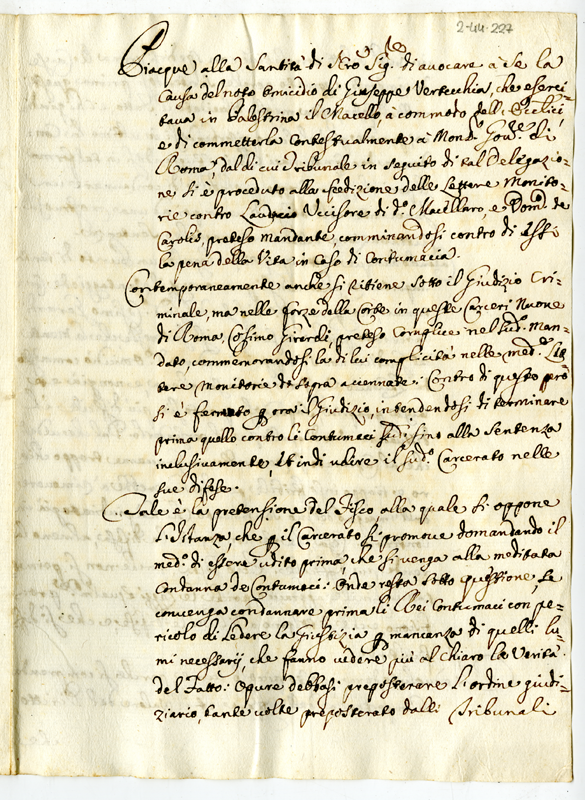 2-44-227
Piacque alla Santità di Nro Sigre di avocare à se la
Causa del noto Omicidio di Giuseppe Vertecchia, che eserci-
tava in Palestrina il Macello à commodo dell'
e di commetterla contestualmente à Monsr Govre di
Roma, dal di cui Tribunale in seguito di tal Delegazio-
ne si è proceduto alla spedizione delle Lettere Monito-
rie contro Uccisore di do Macellaro, e Domco de
Carolis, preteso Mandante, comminandosi contro di Essi
la pena della Vita in Caso di Contumacia.
Contemporaneamente anche si ritiene sotto il Giudizio Cri-
minale, ma nelle forze della Corte in queste Carceri Nuove
di Roma, Cosimo Girardi, preteso Complice nel sudo Man-
dato, commemorandosi la di lui complicità nelle mede Let-
tere Monitorie di sopra accennate: Contro di questo però
si è fermato p ora il Giudizio, intendendosi di terminare
prima quello contro li Contumaci sudi sino alla Sentenza
inclusivamente, et indi udire il sudo Carcerato nelle
sue difese.
Tale è la pretensione del Fisco, alla quale si oppone
l'istanza che p il Carcerato si promove domandando il
medo di essere udito prima che si venga alla meditata
Condanna de Contumaci: Onde resta sotto questione, se
convenga condannare prima li Rei Contumaci con pe-
ricolo di ledere la Giustizia p mancanza di quelli lu-
mi necessarij, che fanno vedere più al chiaro la Verità
del Fatto: Opure debbasi preposterare l'ordine giudi-
ziario, tante volte preposterato dalli Tribunali